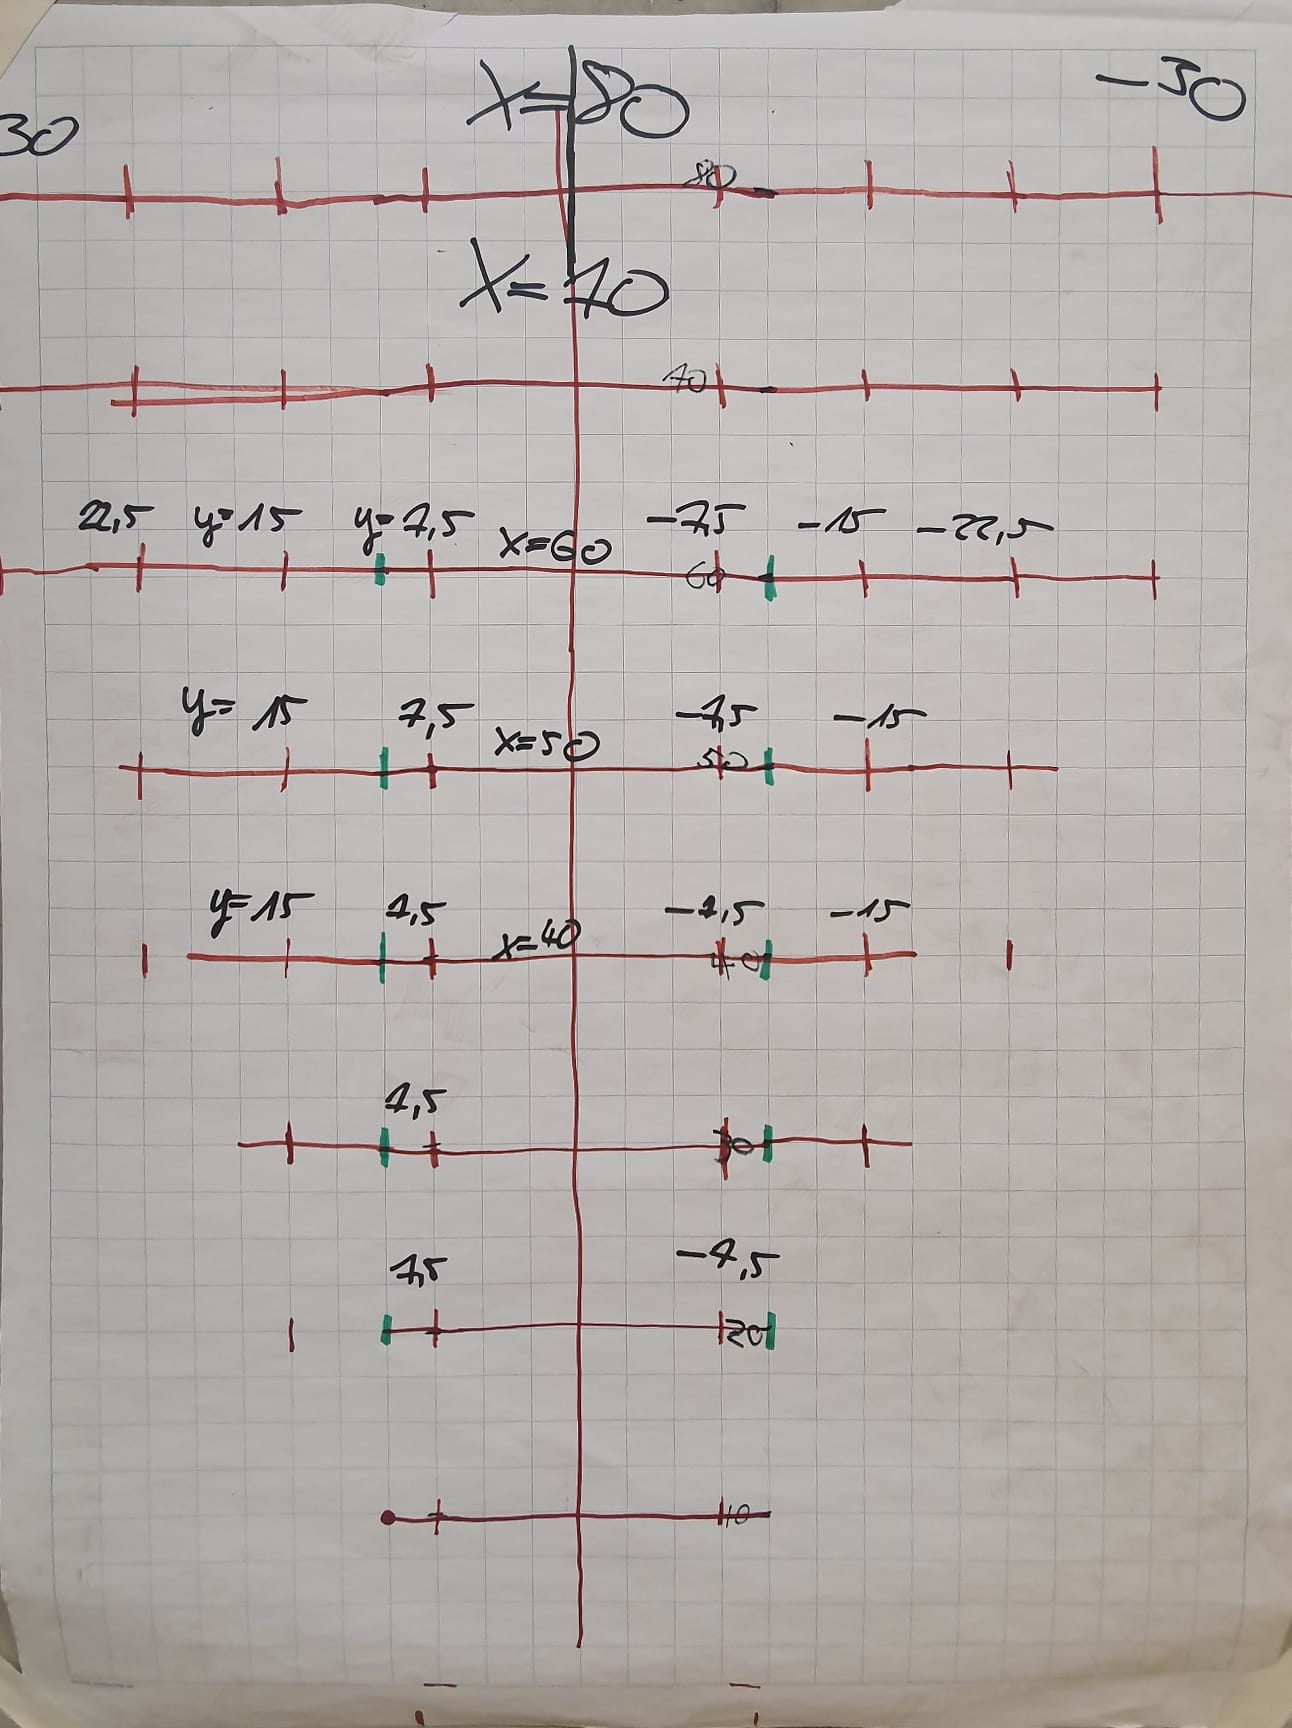 X=80
-30
30
80
X=70
70
22,5 y=15 y=7,5 x=60 -7,5 -15 -22,5
60
y= 15 7,5 x=50 -7,5 -15
50
y=15 7,5 x=40 -7,5 -15
40
7,5
30
7,5 -7,5
20
10